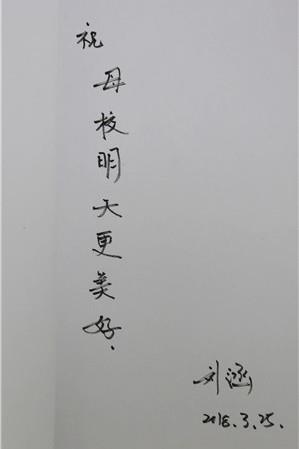 祝
母校明天更美好.
刘涵
2018.3.25.